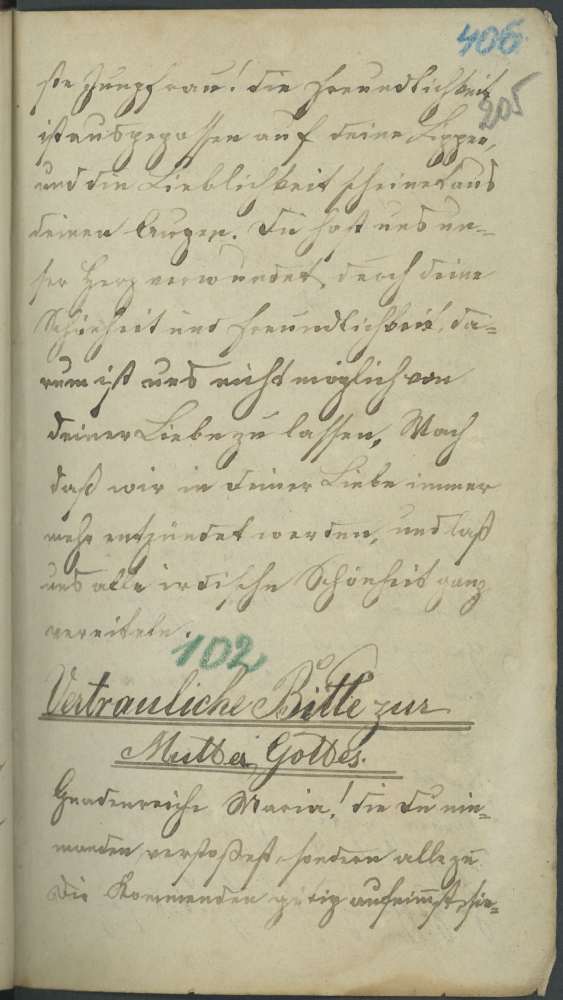 406
205
ste Jungfrau! die Freundlichkeit
ist ausgegossen auf deine Lippen,
und die Lieblichkeit scheinet aus
deinen Augen. Du hast uns un=
ser Herz verwundet, durch deine
Schönheit und Freundlichkeit, da=
rum ist uns nicht möglich von
deiner Liebe zu lassen, Mach
daß wir in deiner Liebe immer
mehr entzündet werden, und laß
uns alle irdische Schönheit ganz
vereiteln.
102
Vertrauliche Bitte zur
Mutter Gottes.
Gnadenreiche Maria! die du nie=
manden verstoßest, sondern alle zu
Dir Kommenden gütig aufnimmst, sie=